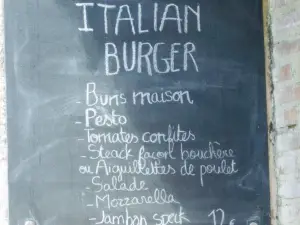 ITALIAN
BURGER
- Buns maison
- Pesto
- Tomates confites
- Steack façon bouchère
ou Aiguillettes de poulet
- Salade
- Mozzarella
- Jambon speck 12€